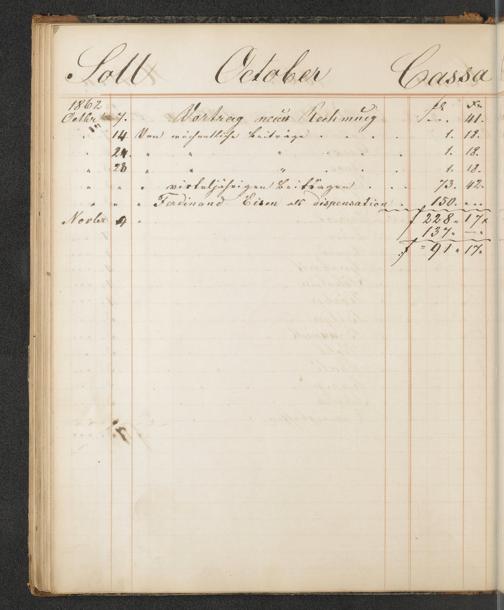 Soll October Cassa
1862 fl. Xr
Octbr 7. Vortrag neün Rechnung - . - . 41.
" 14 Von wöchentliche Beiträge . . . . 1. 18.
" 21. " " " . . 1. 18.
" 28 " " " . . 1. 18.
" " " virteljährigen Beiträgen . . 73. 42.
" " " Ferdinand als dispensation . . 150. - . -
Novbr 4 " f 228 " 17x
137. - . -
f = 91 " 17.